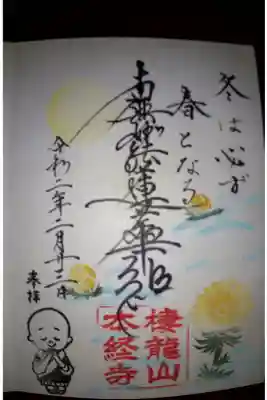 冬は必ず
春となる
南無妙法蓮華経
令和二年二月廿三日
奉拝
棲龍山
本経寺